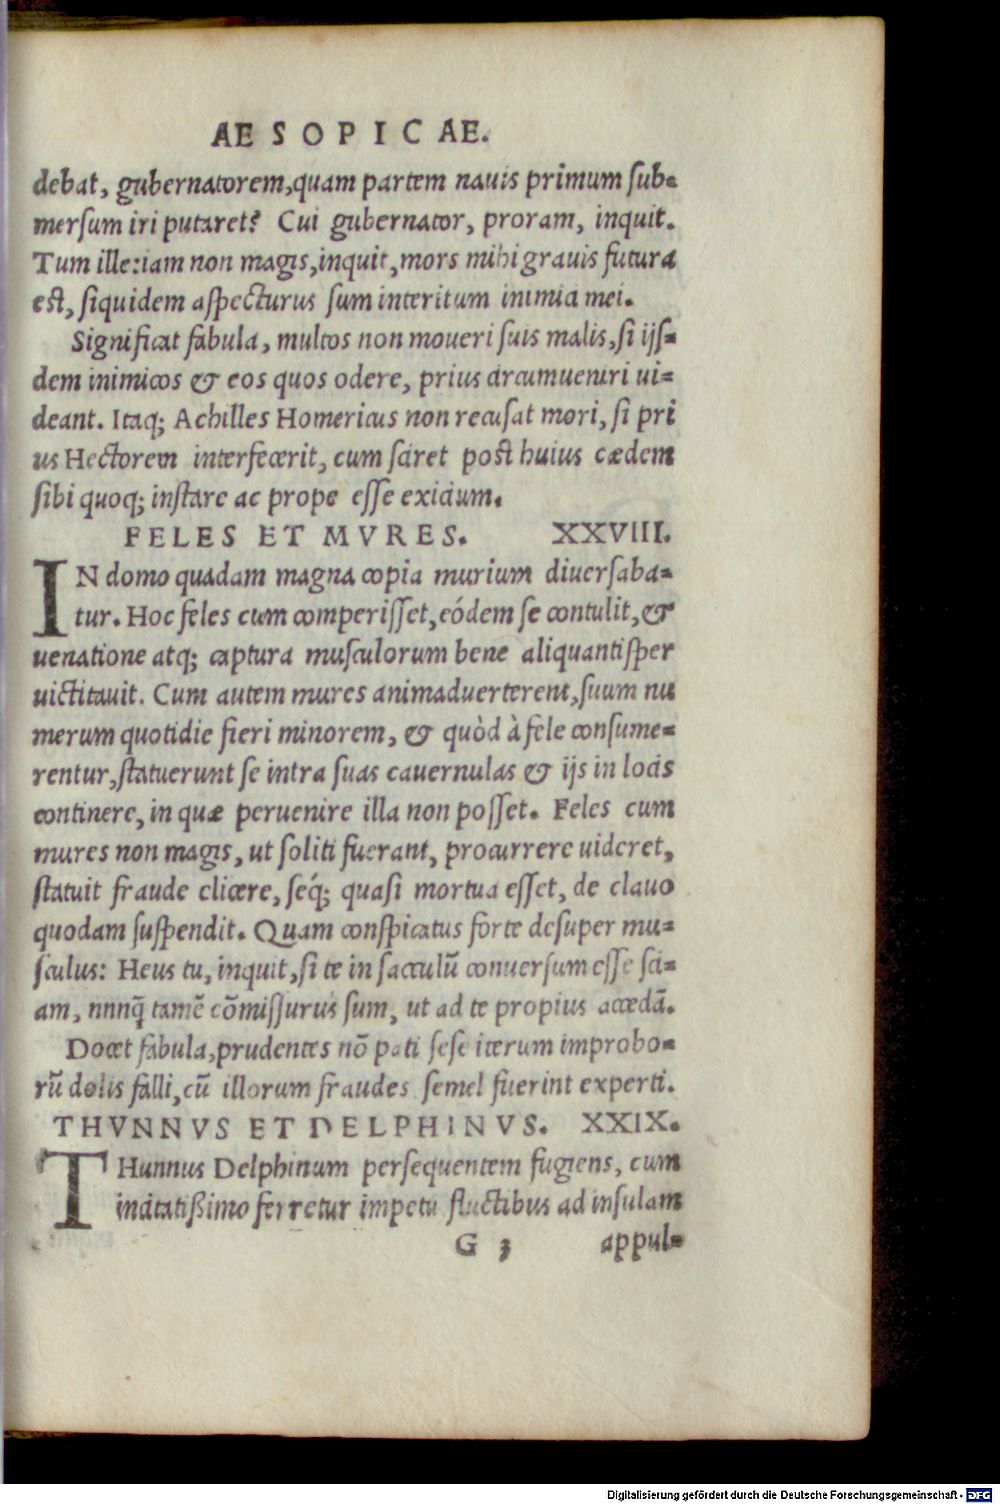 AESOPICAE.
debat, gubernatorem, quam partem nauis primum sub-
mersum iri putaret? Cui gubernator, proram, inquit.
Tum ille: iam non magis, inquit, mors mihi grauis futura
est, siquidem aspecturus sum interitum inimici mei.
Significat fabula, multos non moueri suis malis, si ijs-
dem inimicos & eos quos odere, prius circumueniri ui-
deant. Itaq; Achilles Homericus non recusat mori, si pri
us Hectorem interfecerit, cum sciret post huius cædem
sibi quoq; instare ac prope esse exicium.
FELES ET MVRES. XXVIII.
IN domo quadam magna copia murium diuersaba-
tur. Hoc feles cum comperisset, eódem se contulit, &
uenatione atq; captura musculorum bene aliquantisper
uictitauit. Cum autem mures animaduerterent, suum nu
merum quotidie fieri minorem, & quòd à fele consume-
rentur, statuerunt se intra suas cauernulas & ijs in locis
continere, in quæ peruenire illa non posset. Feles cum
mures non magis, ut soliti fuerant, procurrere uideret,
statuit fraude elicere, seq́; quasi mortua esset, de clauo
quodam suspendit. Quam conspicatus forte desuper mu-
sculus: Heus tu, inquit, si te in sacculũ conuersum esse sci-
am, nnnq̃ tamẽ cõmissurus sum, ut ad te propius accedã.
Docet fabula, prudentes nõ pati sese iterum improbo-
rũ dolis falli, cũ illorum fraudes semel fuerint experti.
THVNNVS ET DELPHINVS. XXIX.
THunnus Delphinum persequentem fugiens, cum
incitatißimo ferretur impetu fluctibus ad insulam
G 3 appul-
Digitalisierung gefördert durch die Deutsche Forschungsgemeinschaft - DFG